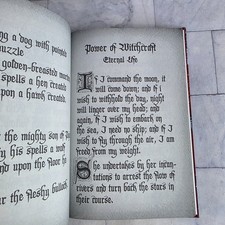 ing a dog with pointed
muzzle
golden-breasted
spells a hen created
upon a hawk created.
the mighty son of
ky his spells a wolf
and upon the floor he
r the fleshy bullock
Power of Witchcraft
Eternal Life
If I command the moon, it
will come down; and if I
wish to withhold the day, night
will linger over my head; and
again, if I wish to embark on
the sea, I need no ship; and if I
wish to fly through the air, I am
freed from my weight.
She undertakes by her incan-
tations to arrest the flow of
rivers and turn back the stars in
their course.